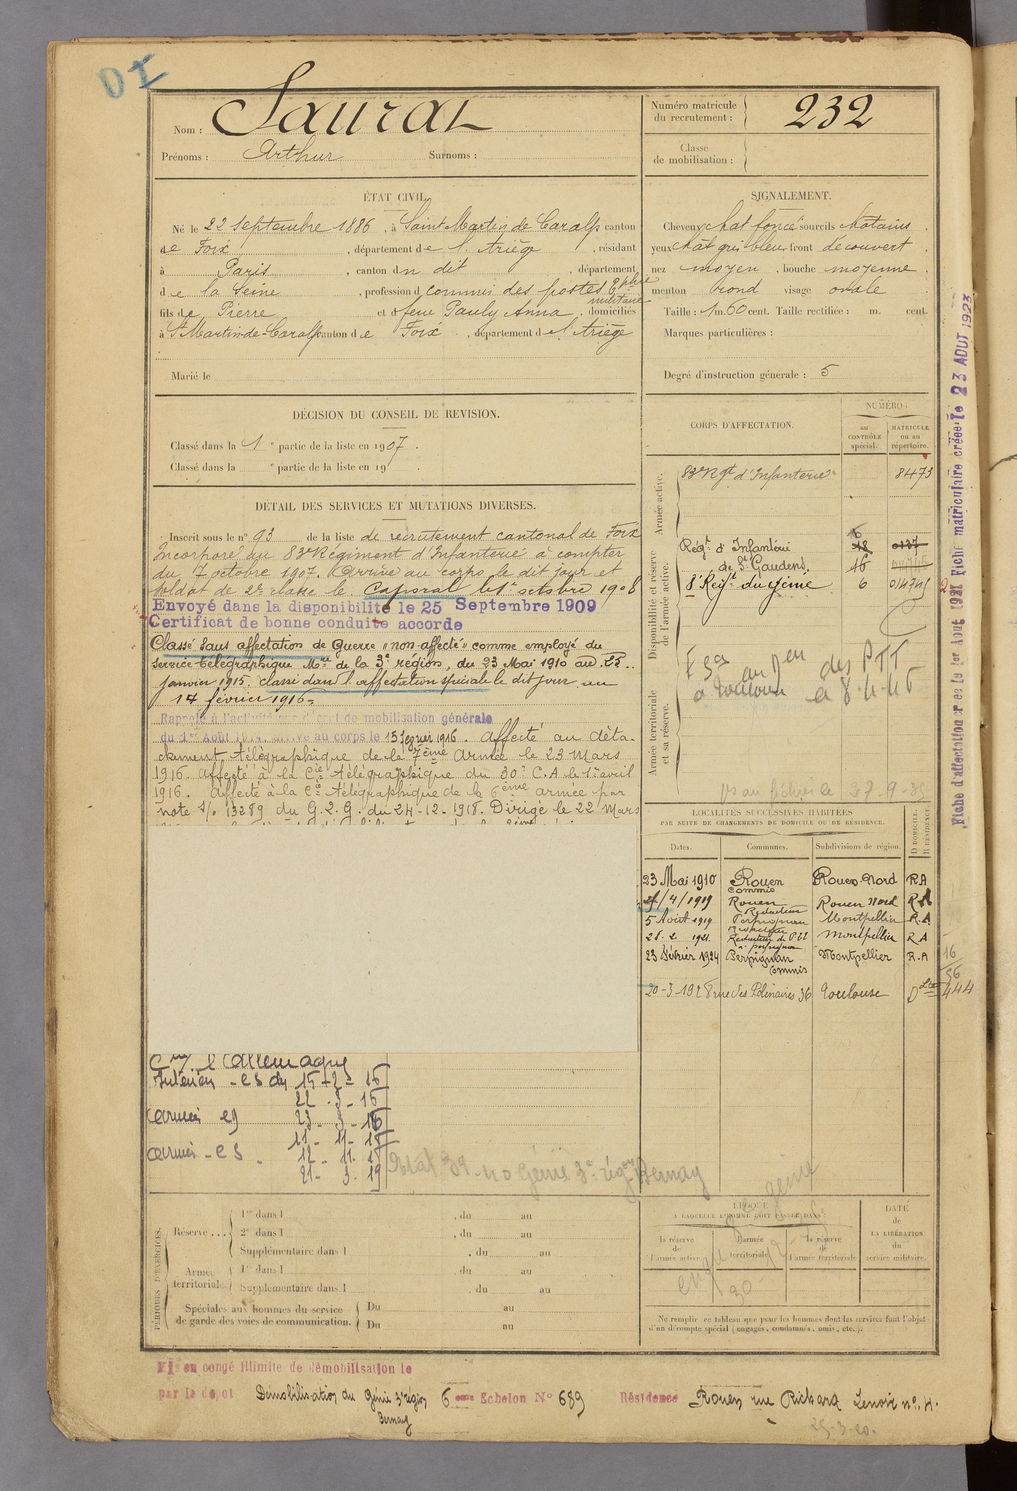 Nom : Saurat
Prénoms : Arthur Surnoms :
Numéro matricule du recrutement : 232
Classe de mobilisation :
ÉTAT CIVIL.
Né le 22 septembre 1886, à Saint Martin de Caralp canton
de Foix, département de l'Ariège, résidant
à Paris, canton du dit, département
de la Seine, profession d commis des postes
militaire
fils de Pierre et de feue Pauly Anna, domiciliés
à St Martin-de-Caralp canton de Foix, département de l'Ariège
Marié le
SIGNALEMENT.
Cheveux chat foncé sourcils chatains
yeux chat gris bleu front découvert
nez moyen, bouche moyenne
menton rond visage ovale
Taille : 1 m. 60 cent. Taille rectifiée : m. cent.
Marques particulières :
Degré d'instruction générale : 5
DÉCISION DU CONSEIL DE REVISION.
Classé dans la 1e partie de la liste en 1907.
Classé dans la e partie de la liste en 19
DÉTAIL DES SERVICES ET MUTATIONS DIVERSES.
Inscrit sous le n° 93 de la liste de recrutement cantonal de Foix
Incorporé au 83e Régiment d'Infanterie à compter
du 7 octobre 1907. Arrivé au corps le dit jour et
soldat de 2e classe le. Caporal le 1er octobre 1908
Envoyé dans la disponibilité le 25 Septembre 1909
Certificat de bonne conduite accordé
Classé sans affectation de Guerre "non-affecté" comme employé du
service télégraphique Mre de la 3e région, du 23 Mai 1910 au
janvier 1915, classé dans l'affectation spéciale le dit jour au
14 février 1916.
Rappelé à l'activité par décret de mobilisation générale
du 1er Août 1914. Arrivé au corps le 15 février 1916. Affecté au déta-
chement télégraphique de la 7ème Armée le 23 Mars
1916. affecté à la Cie télégraphique du 30e C.A le 1er avril
1916. affecté à la Cie télégraphique de la 6ème armée par
note s/s 13289 du G.Q.G. du 24-12-1918. Dirigé le 22 Mars
CORPS D'AFFECTATION.
NUMÉRO :
au CONTRÔLE spécial.
MATRICULE ou au répertoire.
Armée active.
83e Rgt d'Infanterie 8473
Disponibilité et réserve de l'armée active.
Régt d'Infanterie
de St Gaudens. 16
8 Régt du génie 6
Armée territoriale et sa réserve.
des PTT
à Toulouse
Fiche d'affectation créée le 1er Août 1921 Fiche matriculaire créée le 23 AOUT 1923
LOCALITÉS SUCCESSIVES HABITÉES
PAR SUITE DE CHANGEMENTS DE DOMICILE OU DE RÉSIDENCE.
Dates. Communes. Subdivisions de région. D DOMICILE. R RÉSIDENCE.
23 Mai 1910 Rouen Rouen-Nord RA
commis
/4/1919 Rouen Rouen Nord RA
Rédacteur
5 Août 1919 Perpignan Montpellier R.A
21. 2 1921. Rédacteur de PTT Montpellier RA
à Perpignan
23 Février 1924 Perpignan Montpellier R.A
commis
20-3-192 8 rue des Polinaires 36 Toulouse
16
86
444
Cgne c/ l'Allemagne
Intérieur - CS du 15-2-16
22-3-16
Armées 23-3-16
11-11-18
Armées - CS 12-11-18
21-3-19
génie 3e région Bernay
PÉRIODES D'EXERCICES.
Réserve... 1re dans l , du au
2e dans l , du au
Supplémentaire dans l , du au
Armée territoriale 1re dans l , du au
Supplémentaire dans l , du au
Spéciales aux hommes du service de garde des voies de communication. Du au
Du au
ÉPOQUE
À LAQUELLE L'HOMME DOIT PASSER DANS :
la réserve de l'armée active. l'armée territoriale. la réserve de l'armée territoriale.
DATE de LA LIBÉRATION du service militaire.
Ne remplir ce tableau que pour les hommes dont les services font l'objet
d'un décompte spécial (engagés, condamnés, omis, etc.).
Mis en congé illimité de démobilisation le
par le dépôt Démobilisation du Génie 3e région 6eme Echelon N° 689 Résidence Rouen rue Richard Lenoir n° 4.
Bernay